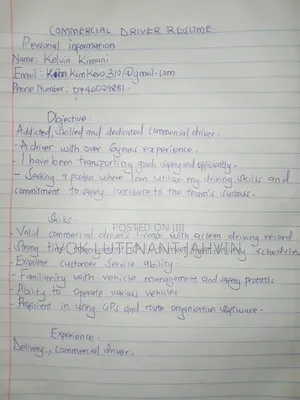 COMMERCIAL DRIVER RESUME.
Personal information
Name: Kelvin Kimani
Email: kimkevo312@gmail.com
Phone Number: 0746029881.
Objective
Addicted, skilled and dedicated commercial driver.
- A driver with over 6years experience.
- I have been transporting goods safely and efficiently.
- Seeking a postion where I can utilize my driving skills and
commitment to safely contribute to the team's success.
Skills
POSTED ON JIJI
- Valid commercial driver's licence with a clean driving record
VOKLUTENANT JAHVIN
Strong time schedules
Excellent customer service ability.
- Familiarity with vehicle management and safety protocols
Ability to operate various vehicles
Proficient in using GPs and route organisation software.
Experience.
Delivery, commercial driver.